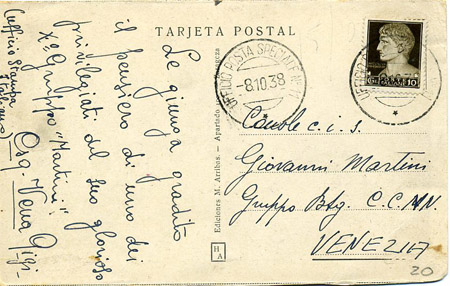 TARJETA POSTAL
Le giunga gradito
il pensiero di uno dei
privilegiati del suo glorioso
X° Gruppo "Martini".
Osq. Vena Gigi
Ufficio Stampa
Italiano
Ediciones M. Arribas. - Apartado
Zaragoza
HA
UFFICIO POSTA SPECIALE N.
-8.10.38
10
Console c.i.s.
Giovanni Martini
Gruppo Btg. C.C.N.N.
VENEZIA
20